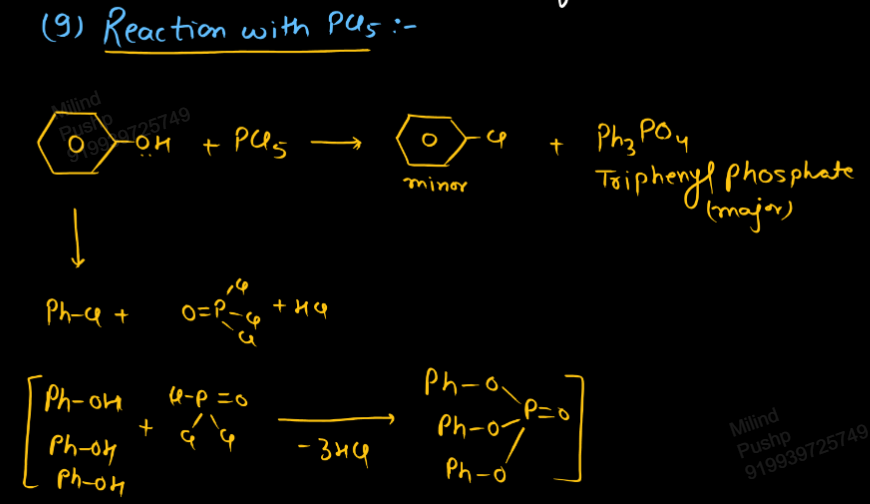 (9) Reaction with PCl5 :-
Milind
Pushp
919939725749
O -OH + PCl5 → O -Cl + Ph3PO4
minor
Triphenyl phosphate
(major)
Ph-Cl + O=P-Cl + HCl
Cl
Cl
Ph-OH
Ph-OH
Ph-OH
+
Cl-P=O
Cl Cl
-3HCl
Ph-O
Ph-O-P=O
Ph-O
Milind
Pushp
919939725749